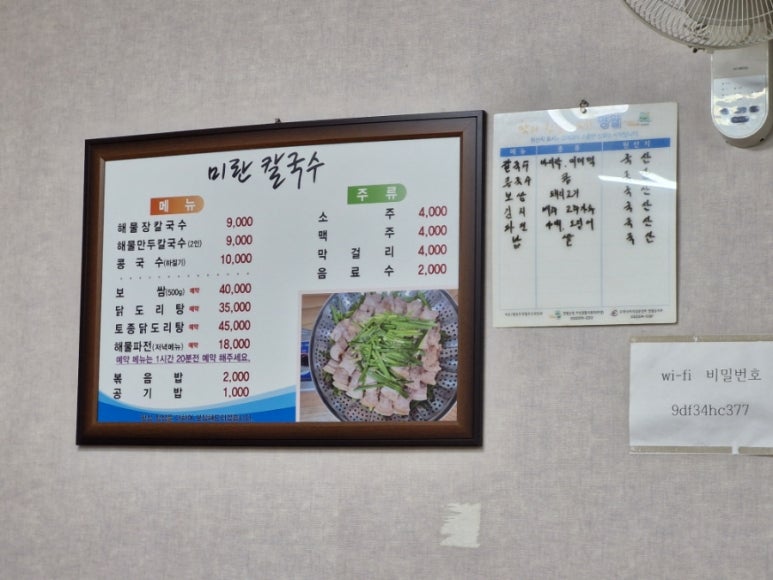 미란 칼국수
메뉴
해물장칼국수 9,000
해물만두칼국수(2인) 9,000
콩국수(하절기) 10,000
보쌈(500g) 예약 40,000
닭도리탕 예약 35,000
토종닭도리탕 예약 45,000
해물파전(저녁메뉴) 예약 18,000
예약 메뉴는 1시간 20분전 예약 해주세요.
볶음밥 2,000
공기밥 1,000
주류
소주 4,000
맥주 4,000
막걸리 4,000
음료수 2,000
메뉴 품목 원산지
칼국수 바지락, 국산
콩국수 콩 국산
보쌈 돼지고기 국산
김치 배추 고추가루 국산
파전 국산
쌀 국산
wi-fi 비밀번호
9df34hc377